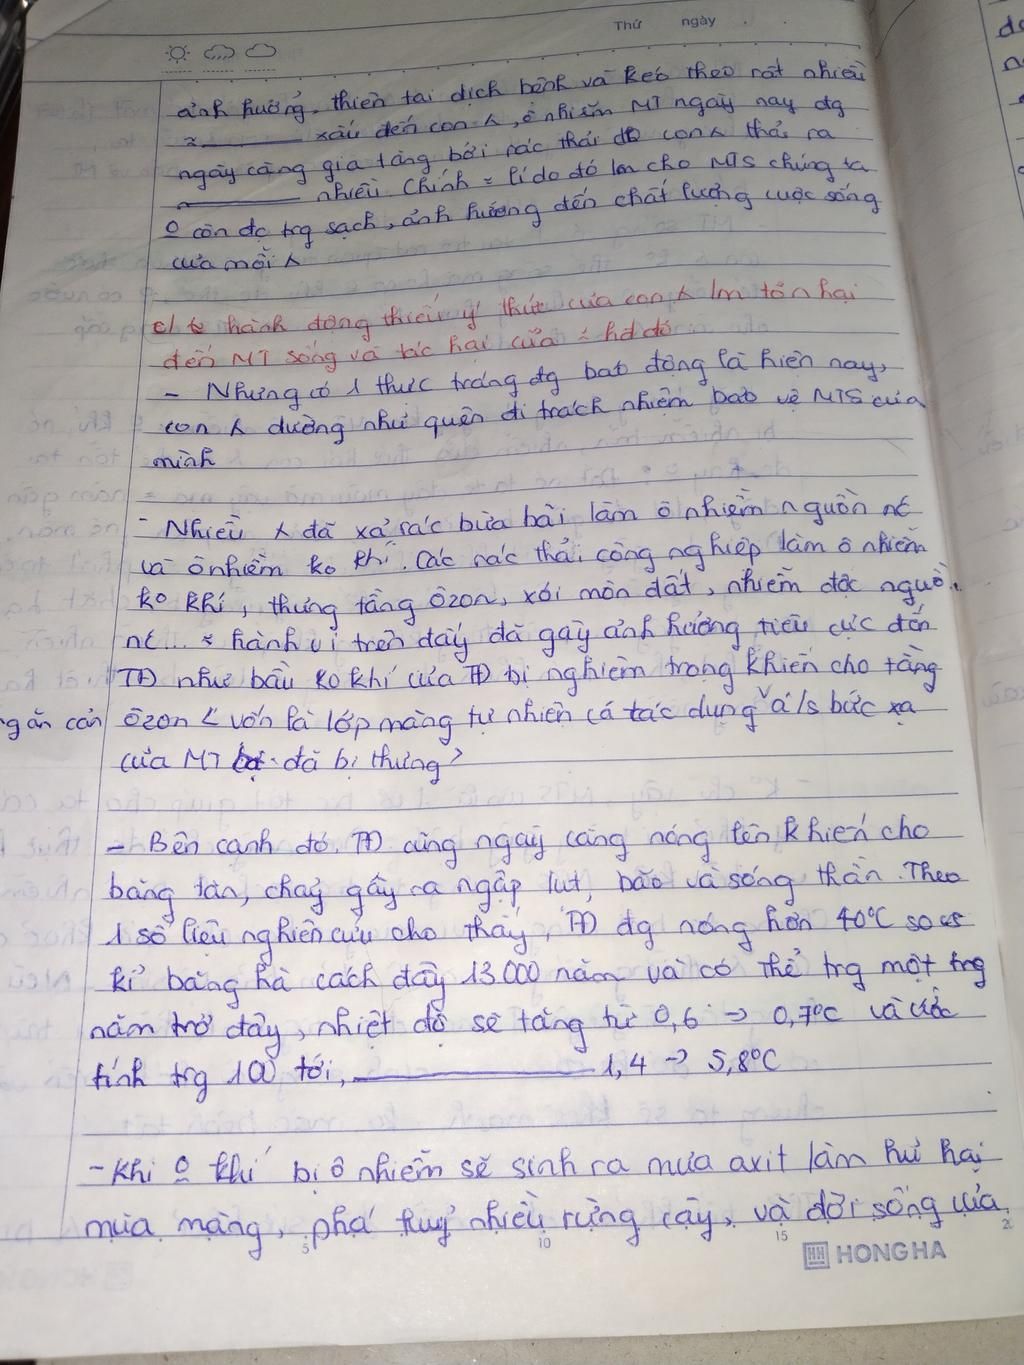 Thứ ngày
ảnh hưởng, thiên tai dịch bệnh và kéo theo rất nhiều
≈ ______ xấu đến con Λ, ô nhiễm MT ngày nay đg
ngày càng gia tăng bởi rác thải do con Λ thải ra
______ nhiều. Chính ≈ lí do đó lm cho MTS chúng ta
O còn đc trg sạch, ảnh hưởng đến chất lượng cuộc sống
của mỗi Λ
c/ ≈ hành động thiếu ý thức của con Λ lm tổn hại
đến MT sống và tác hại của ≈ hđ đó
- Nhưng có 1 thực trạng đg báo động là hiện nay,
con Λ dường như quên đi trách nhiệm bảo vệ MTS của
mình
- Nhiều Λ đã xả rác bừa bãi làm ô nhiễm nguồn nc
và ô nhiễm ko khí. Các rác thải công nghiệp làm ô nhiễm
ko khí, thủng tầng ôzon, xói mòn đất, nhiễm độc nguồn
nc... ≈ hành vi trên đây đã gây ảnh hưởng tiêu cực đến
TĐ như bầu ko khí của TĐ bị nghiêm trọng khiến cho tầng
ôzon < vốn là lớp màng tự nhiên có tác dụng ngăn cản a/s bức xạ
của MT đã bị thủng>
- Bên cạnh đó, TĐ cũng ngày càng nóng lên khiến cho
băng tan, chảy gây ra ngập lụt, bão và sóng thần. Theo
1 số liệu nghiên cứu cho thấy, TĐ đg nóng hơn 40°C so vs
kỉ băng hà cách đây 13.000 năm và có thể trg một trg
năm trở đây, nhiệt độ sẽ tăng từ 0,6 → 0,7°C và ước
tính trg 100 tới, ______ 1,4 → 5,8°C
- Khi O khí bị ô nhiễm sẽ sinh ra mưa axit làm hư hại
mùa màng, phá huỷ nhiều rừng cây, và đời sống của
5 10 15 20
HONG HA